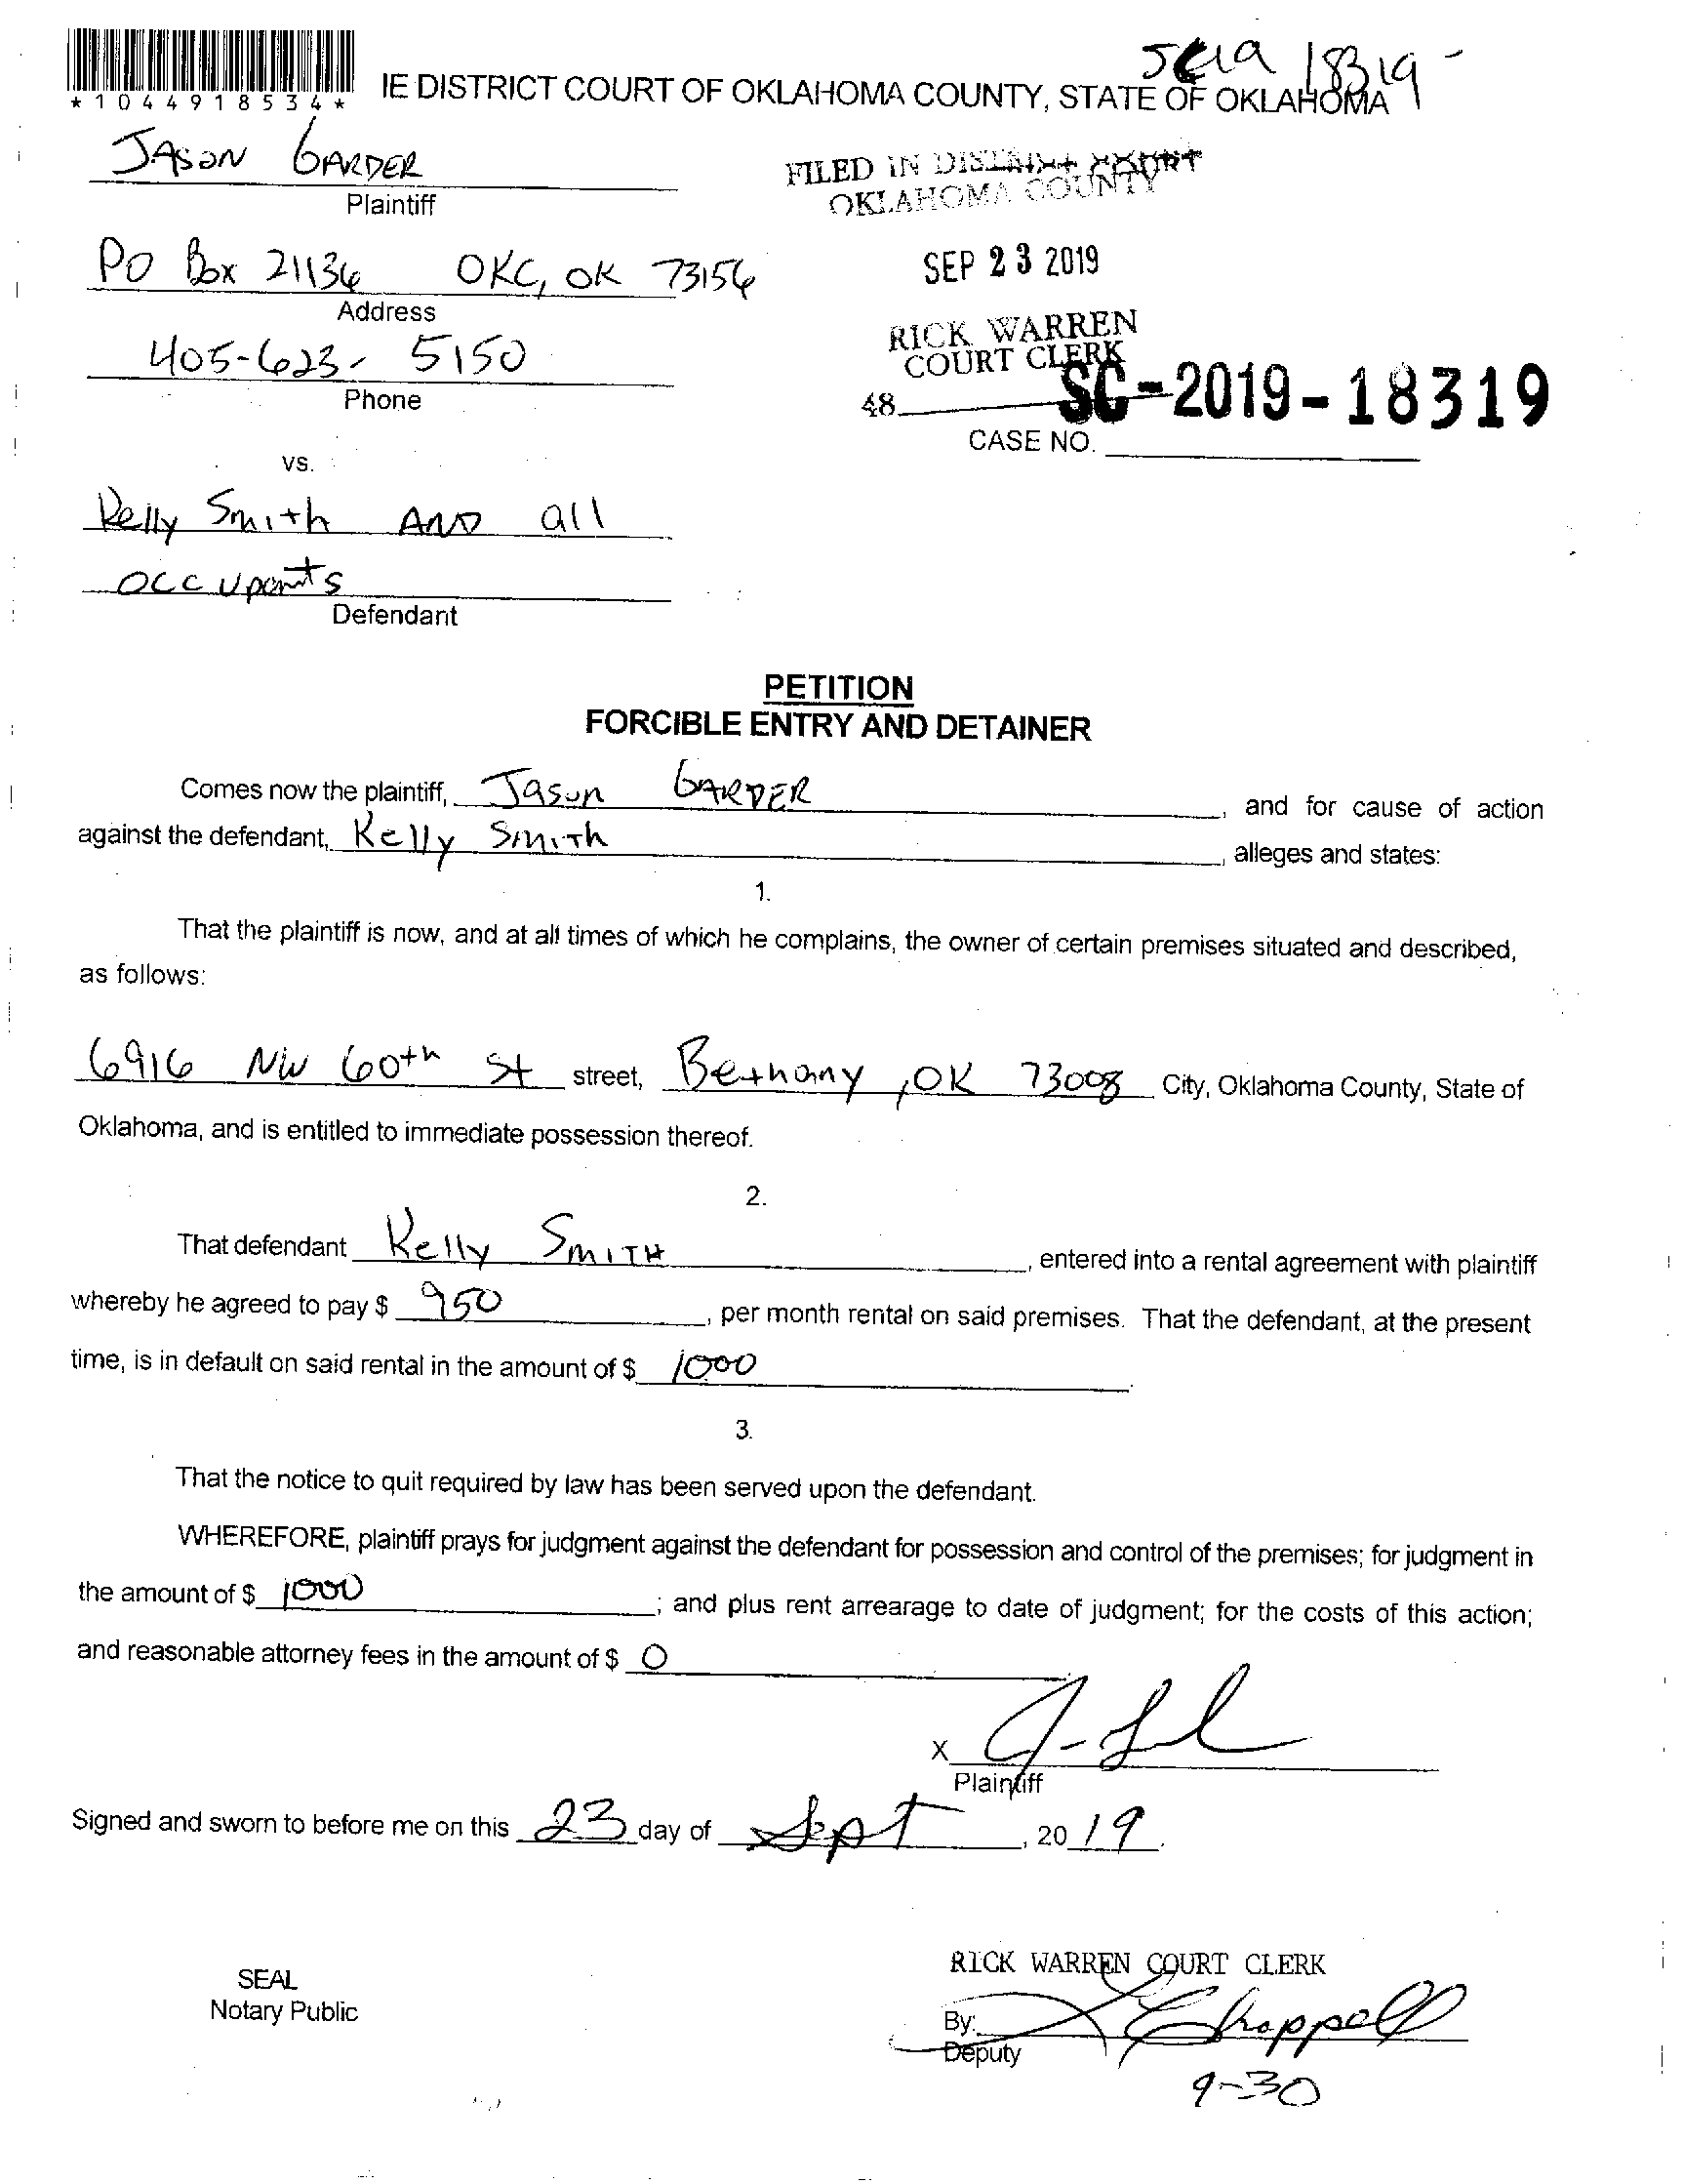 SC19 18319-
*1044918534* IE DISTRICT COURT OF OKLAHOMA COUNTY, STATE OF OKLAHOMA
JASON GARDER
Plaintiff
FILED IN DISTRICT COURT
OKLAHOMA COUNTY
PO Box 21136 OKC, OK 73156
Address
SEP 23 2019
405-623-5150
Phone
RICK WARREN
COURT CLERK
48
SC-2019-18319
CASE NO.
vs.
Kelly Smith AND all
occupants
Defendant
PETITION
FORCIBLE ENTRY AND DETAINER
Comes now the plaintiff, Jason GARDER, and for cause of action
against the defendant, Kelly Smith, alleges and states:
1.
That the plaintiff is now, and at all times of which he complains, the owner of certain premises situated and described,
as follows:
6916 NW 60th St street, Bethany, OK 73008 City, Oklahoma County, State of
Oklahoma, and is entitled to immediate possession thereof.
2.
That defendant Kelly SMITH, entered into a rental agreement with plaintiff
whereby he agreed to pay $ 950, per month rental on said premises. That the defendant, at the present
time, is in default on said rental in the amount of $ 1000.
3.
That the notice to quit required by law has been served upon the defendant.
WHEREFORE, plaintiff prays for judgment against the defendant for possession and control of the premises; for judgment in
the amount of $ 1000; and plus rent arrearage to date of judgment; for the costs of this action;
and reasonable attorney fees in the amount of $ 0
X
Plaintiff
Signed and sworn to before me on this 23 day of Sept, 2019.
SEAL
Notary Public
RICK WARREN COURT CLERK
By: Chappell
Deputy
9-30